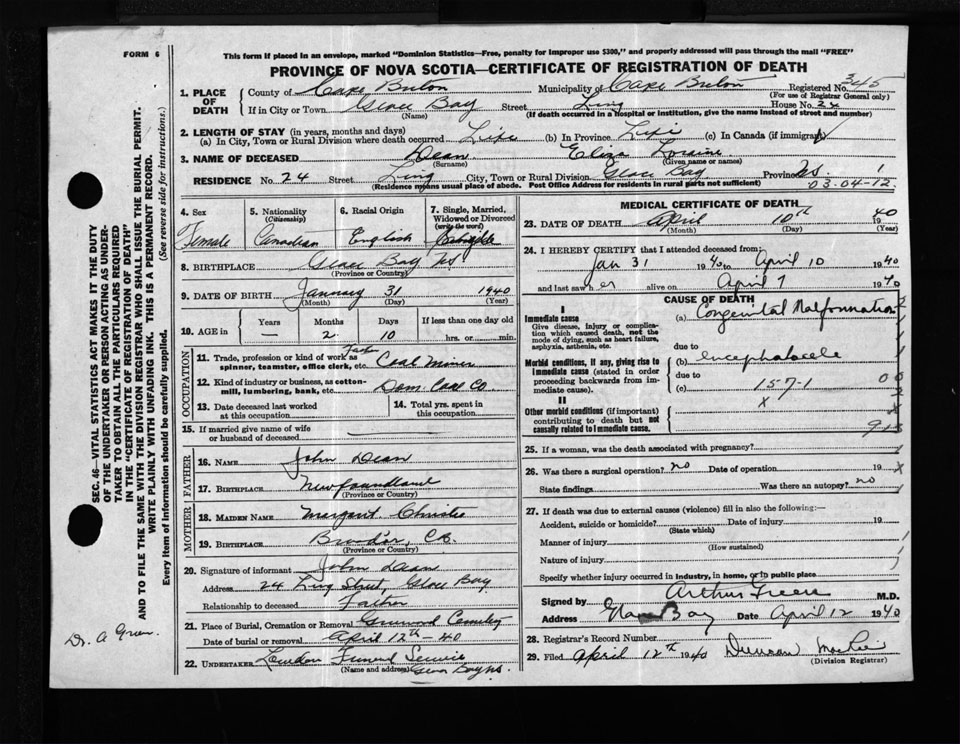 FORM 6
This form if placed in an envelope, marked "Dominion Statistics—Free, penalty for improper use $300," and properly addressed will pass through the mail "FREE"
PROVINCE OF NOVA SCOTIA—CERTIFICATE OF REGISTRATION OF DEATH
1. PLACE OF DEATH County of Cape Breton Municipality of Cape Breton Registered No. 345
(For use of Registrar General only)
If in City or Town Glace Bay Street Ling House No. 24
(Name) (If death occurred in a hospital or institution, give the name instead of street and number)
2. LENGTH OF STAY (in years, months and days)
(a) In City, Town or Rural Division where death occurred Life (b) In Province Life (c) In Canada (if immigrant)
3. NAME OF DECEASED Dean Eliza Loraine
(Surname) (Given name or names)
RESIDENCE No. 24 Street Ling City, Town or Rural Division Glace Bay Province NS 1
(Residence means usual place of abode. Post Office Address for residents in rural parts not sufficient) 03-04-12
4. Sex 5. Nationality (Citizenship) 6. Racial Origin 7. Single, Married, Widowed or Divorced (write the word)
Female Canadian English Single
8. BIRTHPLACE Glace Bay NS
(Province or Country)
9. DATE OF BIRTH January 31 1940
(Month) (Day) (Year)
10. AGE in Years Months Days If less than one day old
— 2 10 hrs. or min.
OCCUPATION
11. Trade, profession or kind of work as spinner, teamster, office clerk, etc. Father Coal Miner
12. Kind of industry or business, as cotton-mill, lumbering, bank, etc. Dom. Coal Co
13. Date deceased last worked at this occupation 14. Total yrs. spent in this occupation
15. If married give name of wife or husband of deceased
FATHER
16. NAME John Dean
17. BIRTHPLACE Newfoundland
(Province or Country)
MOTHER
18. MAIDEN NAME Margaret Christie
19. BIRTHPLACE C.B.
(Province or Country)
20. Signature of informant John Dean
Address 24 Ling Street, Glace Bay
Relationship to deceased Father
21. Place of Burial, Cremation or Removal Cemetery
Date of burial or removal April 12th - 40
22. UNDERTAKER Funeral Service
(Name and address) Glace Bay NS.
MEDICAL CERTIFICATE OF DEATH
23. DATE OF DEATH April 10th 40
(Month) (Day) (Year)
24. I HEREBY CERTIFY that I attended deceased from:
Jan 31 1940 to April 10 1940
and last saw her alive on April 7 1940
CAUSE OF DEATH
I
Immediate cause (a) Congenital Malformation
Give disease, injury or complication which caused death, not the mode of dying, such as heart failure, asphyxia, asthenia, etc.
due to
Morbid conditions, if any, giving rise to immediate cause (stated in order proceeding backwards from immediate cause). (b) encephalocele
due to
(c) 157-1
II
Other morbid conditions (if important) contributing to death but not causally related to immediate cause.
25. If a woman, was the death associated with pregnancy?
26. Was there a surgical operation? no Date of operation 19
State findings Was there an autopsy? no
27. If death was due to external causes (violence) fill in also the following:—
Accident, suicide or homicide? Date of injury 19
(State which)
Manner of injury
(How sustained)
Nature of injury
Specify whether injury occurred in industry, in home, or in public place
Signed by Arthur Greene M.D.
Address Glace Bay Date April 12 1940
28. Registrar's Record Number
29. Filed April 12th 1940 Duncan MacRae
(Division Registrar)
SEC. 46—VITAL STATISTICS ACT MAKES IT THE DUTY
OF THE UNDERTAKER OR PERSON ACTING AS UNDER-
TAKER TO OBTAIN ALL THE PARTICULARS REQUIRED
IN THE "CERTIFICATE OF REGISTRATION OF DEATH"
AND TO FILE THE SAME WITH THE DIVISION REGISTRAR WHO SHALL ISSUE THE BURIAL PERMIT.
WRITE PLAINLY WITH UNFADING INK. THIS IS A PERMANENT RECORD.
Every item of information should be carefully supplied. (See reverse side for instructions.)
Dr. A Green